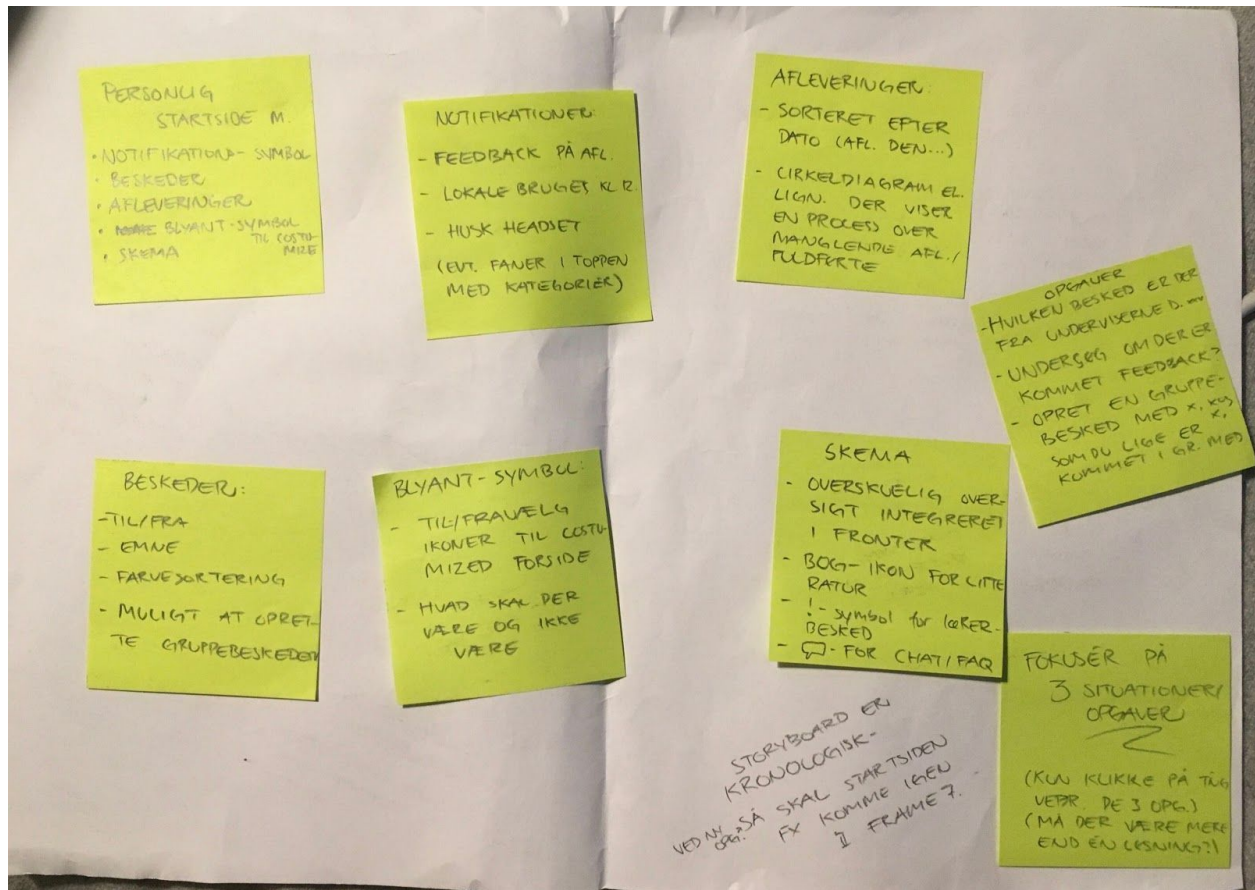 PERSONLIG
STARTSIDE M.
• NOTIFIKATIONS-SYMBOL
• BESKEDER
• AFLEVERINGER
• BLYANT-SYMBOL
TIL COSTU-
MIZE
• SKEMA
NOTIFIKATIONER:
- FEEDBACK PÅ AFL.
- LOKALE BRUGES KL 12.
- HUSK HEADSET
(EVT. FANER I TOPPEN
MED KATEGORIER)
AFLEVERINGER:
- SORTERET EFTER
DATO (AFL. DEN...)
- CIRKELDIAGRAM EL.
LIGN. DER VISER
EN PROCESS OVER
MANGLENDE AFL./
FULDFØRTE
OPGAVER
- HVILKEN BESKED ER DER
FRA UNDERVISERNE D.
- UNDERSØG OM DER ER
KOMMET FEEDBACK?
- OPRET EN GRUPPE-
BESKED MED X, X og
X,
SOM DU LIGE ER
KOMMET I GR. MED
BESKEDER:
- TIL/FRA
- EMNE
- FARVESORTERING
- MULIGT AT OPRET-
TE GRUPPEBESKEDER
BLYANT-SYMBOL:
- TIL/FRAVÆLG
IKONER TIL COSTU-
MIZED FORSIDE
- HVAD SKAL DER
VÆRE OG IKKE
VÆRE
SKEMA
- OVERSKUELIG OVER-
SIGT INTEGRERET
I FRONTER
- BOG-IKON FOR LITTE
RATUR
- ! - symbol for lærER-
BESKED
- FOR CHAT/FAQ
FOKUSÉR PÅ
3 SITUATIONER/
OPGAVER
(KUN KLIKKE PÅ TING
VEDR. DE 3 OPG.)
(MÅ DER VÆRE MERE
END ÉN LØSNING?)
STORYBOARD ER
KRONOLOGISK-
VED NY OPG? SÅ SKAL STARTSIDEN
FX KOMME IGEN
I FRAME 7.